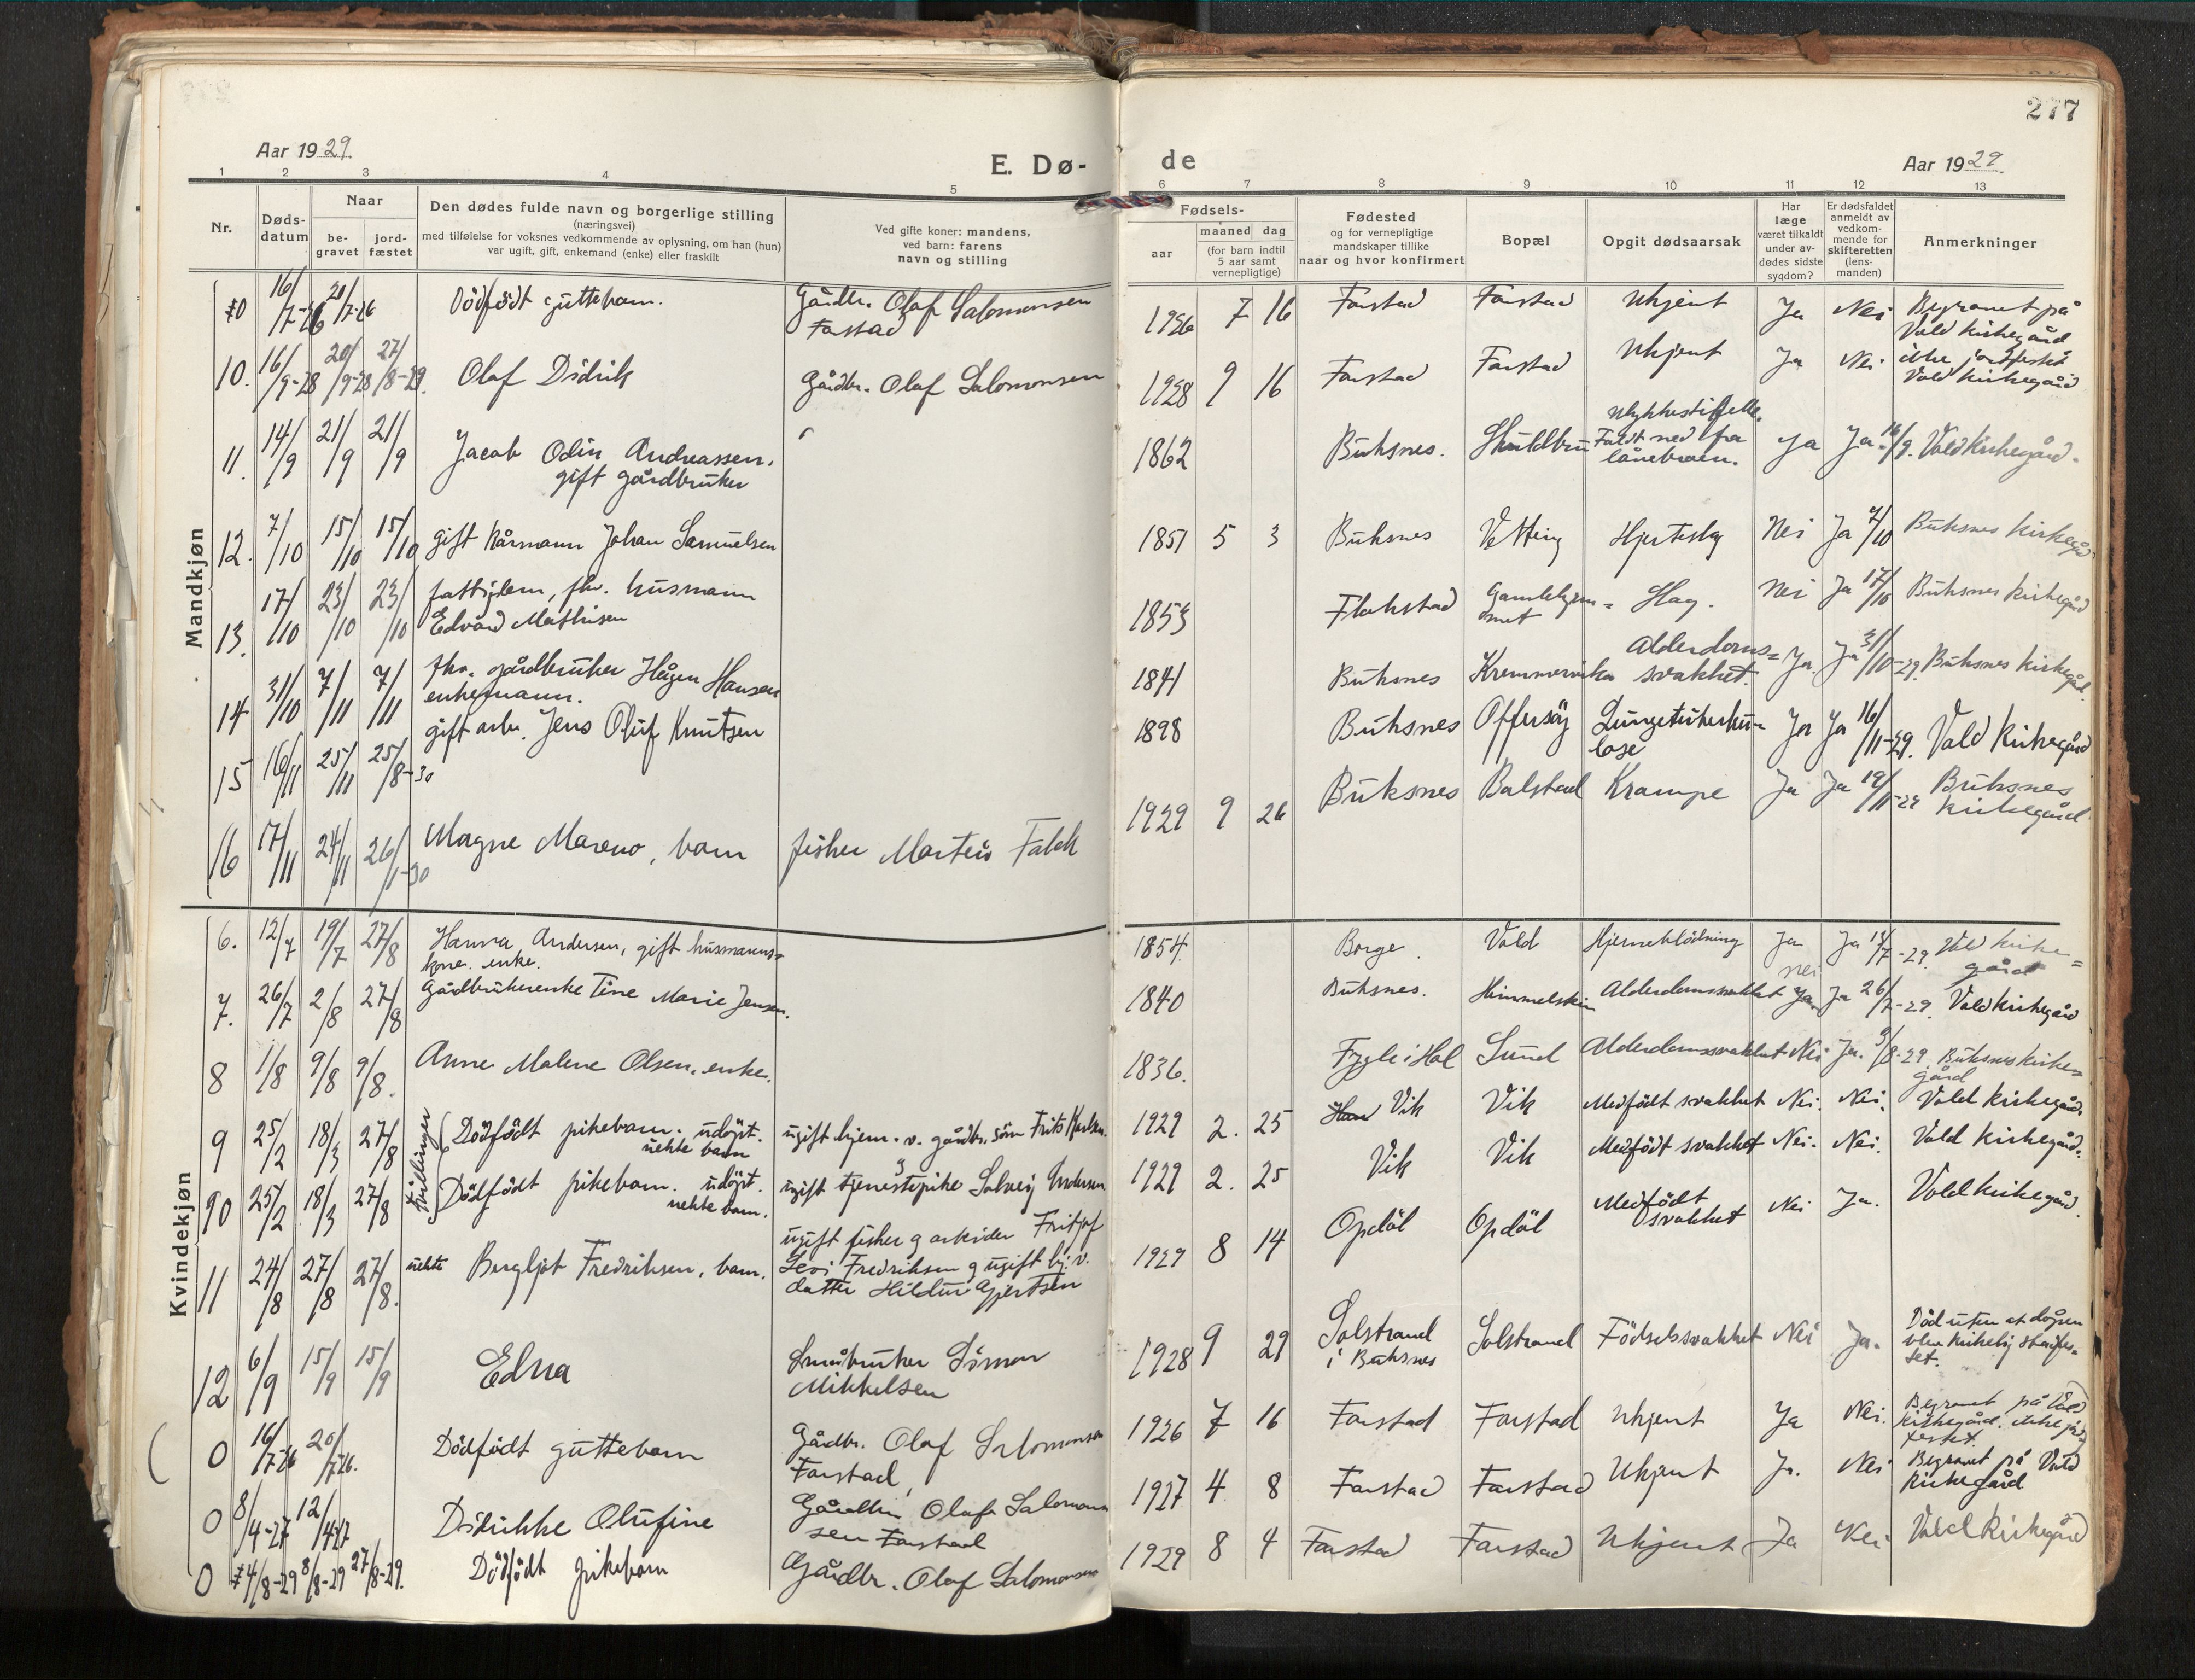 277
Aar 1929.
E. Dø-
de
Aar 1929.
1 2 3 4 5 6 7 8 9 10 11 12 13
Nr.
Døds-
datum
Naar
be-
gravet
jord-
fæstet
Den dødes fulde navn og borgerlige stilling
(næringsvei)
med tilføielse for voksnes vedkommende av oplysning, om han (hun)
var ugift, gift, enkemand (enke) eller fraskilt
Ved gifte koner: mandens,
ved barn: farens
navn og stilling
Fødsels-
aar
maaned dag
(for barn indtil
5 aar samt
vernepligtige)
Fødested
og for vernepligtige
mandskaper tillike
naar og hvor konfirmert
Bopæl
Opgit dødsaarsak
Har
læge
været tilkaldt
under av-
dødes sidste
sygdom?
Er dødsfaldet
anmeldt av
vedkom-
mende for
skifteretten
(lens-
manden)
Anmerkninger
Mandkjøn
0 16/7-26 20/7-26 Dödfödt guttebarn. Gårdbr. Olaf Salomonsen
Farstad
1926 7 16 Farstad Farstad Ukjent Ja Nei Begravet på
Vold kirkegård
ikke jordfestet
10. 16/9-28 20/9-28 27/8-29. Olaf Didrik Gårdbr. Olaf Salomonsen
1928 9 16 Farstad Farstad Ukjent Ja Nei Vold kirkegård
11. 14/9 21/9 21/9 Jacob Odin Andreassen.
gift gårdbruker
1862 Buksnes. Skuldbru Ulykkestilfelle.
Faldt ned fra
låvebroen.
Ja Ja 16/9. Vold kirkegård.
12. 7/10 15/10 15/10 gift kårmann Johan Samuelsen
1851 5 3 Buksnes Vetting Hjerteslag Nei Ja 7/10 Buksnes kirkegård
13. 17/10 23/10 23/10 fattiglem, fhv. husmann
Edvard Mathisen
1853 Flakstad Gamlehjem=
met
Slag. Nei Ja 17/10 Buksnes kirkegård
14 31/10 7/11 7/11 fhv. gårdbruker Hågen Hansen
enkemann.
1841 Buksnes Kremmervika Alderdoms=
svakhet.
Ja Ja 31/10-29. Buksnes kirkegård
15 16/11 25/11 25/8-30 gift arb. Jens Oluf Knutsen
1898 Buksnes Offersöy Lungetuberku-
lose
Ja Ja 16/11-29. Vold kirkegård
16 17/11 24/11 26/1-30 Magne Mareno, barn fisker Martin Falch
1929 9 26 Buksnes Balstad Krampe Ja Ja 19/11-29 Buksnes
kirkegård
Kvindekjøn
6. 12/7 19/7 27/8 Hanna Andersen, gift husmanns=
kone. enke.
1854. Borge. Vold Hjerneblödning Ja Ja 13/7-29. Vold kirke=
gård
7. 26/7 2/8 27/8 Gårdbrukerenke Tine Marie Jensen.
1840 Buksnes. Himmelstein Alderdomssvakhet nei
Ja Ja 26/7-29. Vold kirkegård
8 1/8 9/8 9/8. Anne Malene Olsen. enke.
1836. Fygle i Hol Sund Alderdomssvakhet Nei Ja. 3/8-29. Buksnes kirke=
gård
Tvillinger
9 25/2 18/3 27/8 Dödfödt pikebarn. udöpt.
uekte barn
ugift hjem. v. gårdbr. sön Frits Karlsen
1929 2. 25 Vik Vik Medfödt svakhet Nei. Nei. Vold kirkegård.
10 25/2 18/3 27/8 Dödfödt pikebarn. udöpt.
uekte barn.
ugift tjenestepike Solveig Andersen
1929 2. 25 Vik Vik Medfödt svakhet Nei. Nei. Vold kirkegård.
11 24/8 27/8 27/8. uekte Bergljot Fredriksen, barn.
ugift fisker og arbeider Fritjof
Levi Fredriksen og ugift hj. v.
datter Hildur Gjertsen
1929 8 14 Opdöl Opdöl Medfödt
svakhet
Nei Ja. Vold kirkegård.
12 6/9 15/9 15/9 Edna Småbruker Simon
Mikkelsen
1928 9 29 Solstrand
i Buksnes
Solstrand Födselssvakhet Nei Ja. Död uten at dåpen
blev kirkelig stadfes=
tet.
0 16/7-26 20/7-26. Dödfödt guttebarn Gårdbr. Olaf Salomonsen
Farstad,
1926 7 16 Farstad Farstad Ukjent Ja Nei. Begravet på Vold
kirkegård. ikke jord
festet.
0 8/4-27 12/4-27 Didrikke Olufine Gårdbr. Olaf Salomon
sen Farstad
1927 4 8 Farstad Farstad Ukjent Ja. Nei Begravet på Vold
kirkegård
0 4/8-29 8/8-29 27/8-29. Dödfödt pikebarn Gårdbr. Olaf Salomonsen
1929 8 4 Farstad Farstad Ukjent Ja Nei Vold kirkegård